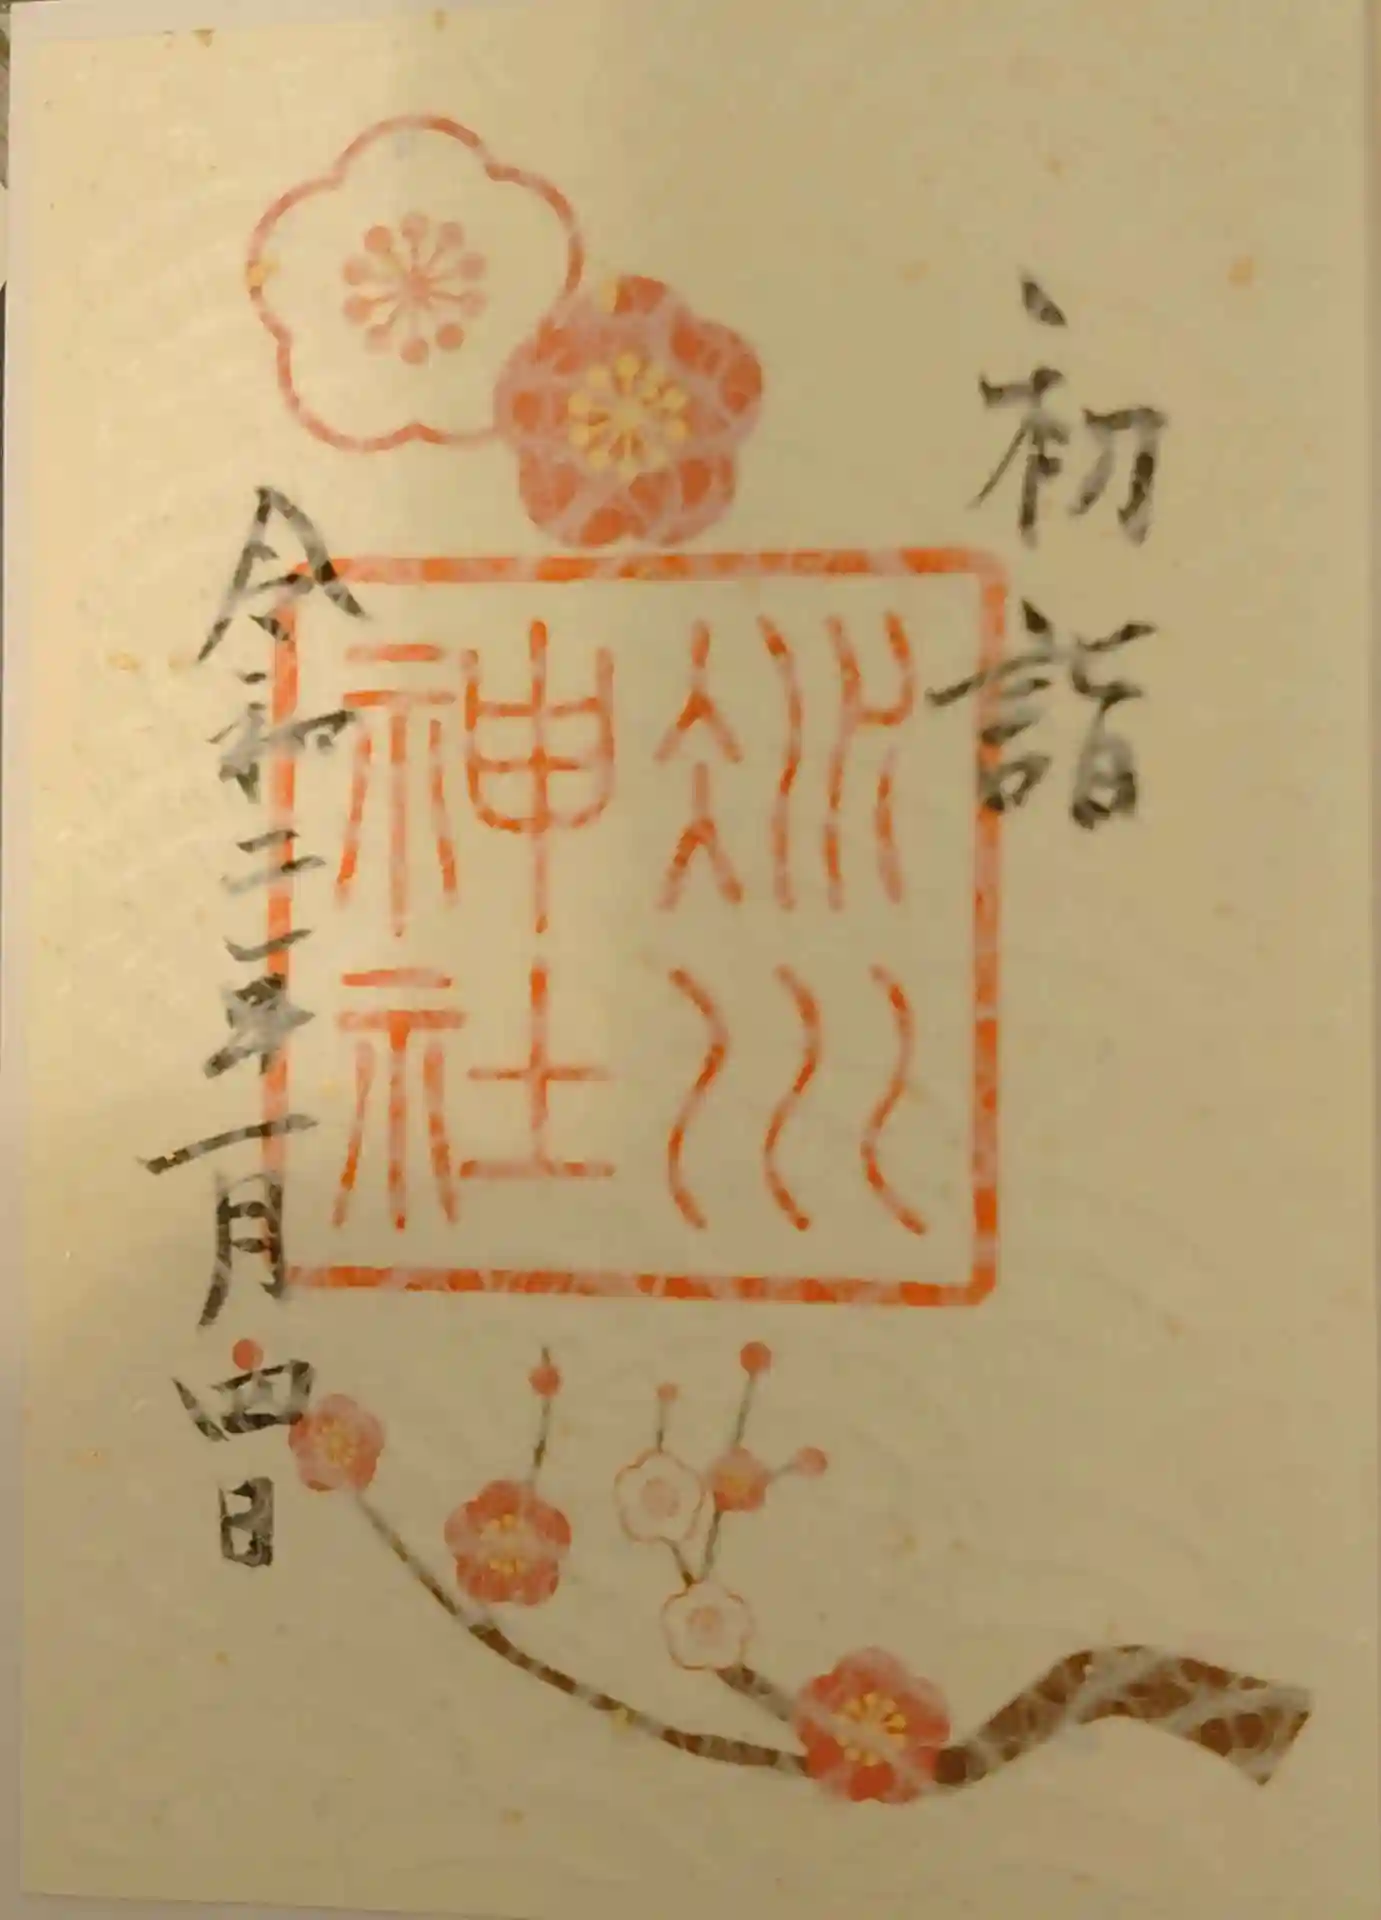 初詣
氷川神社
令和二年一月四日